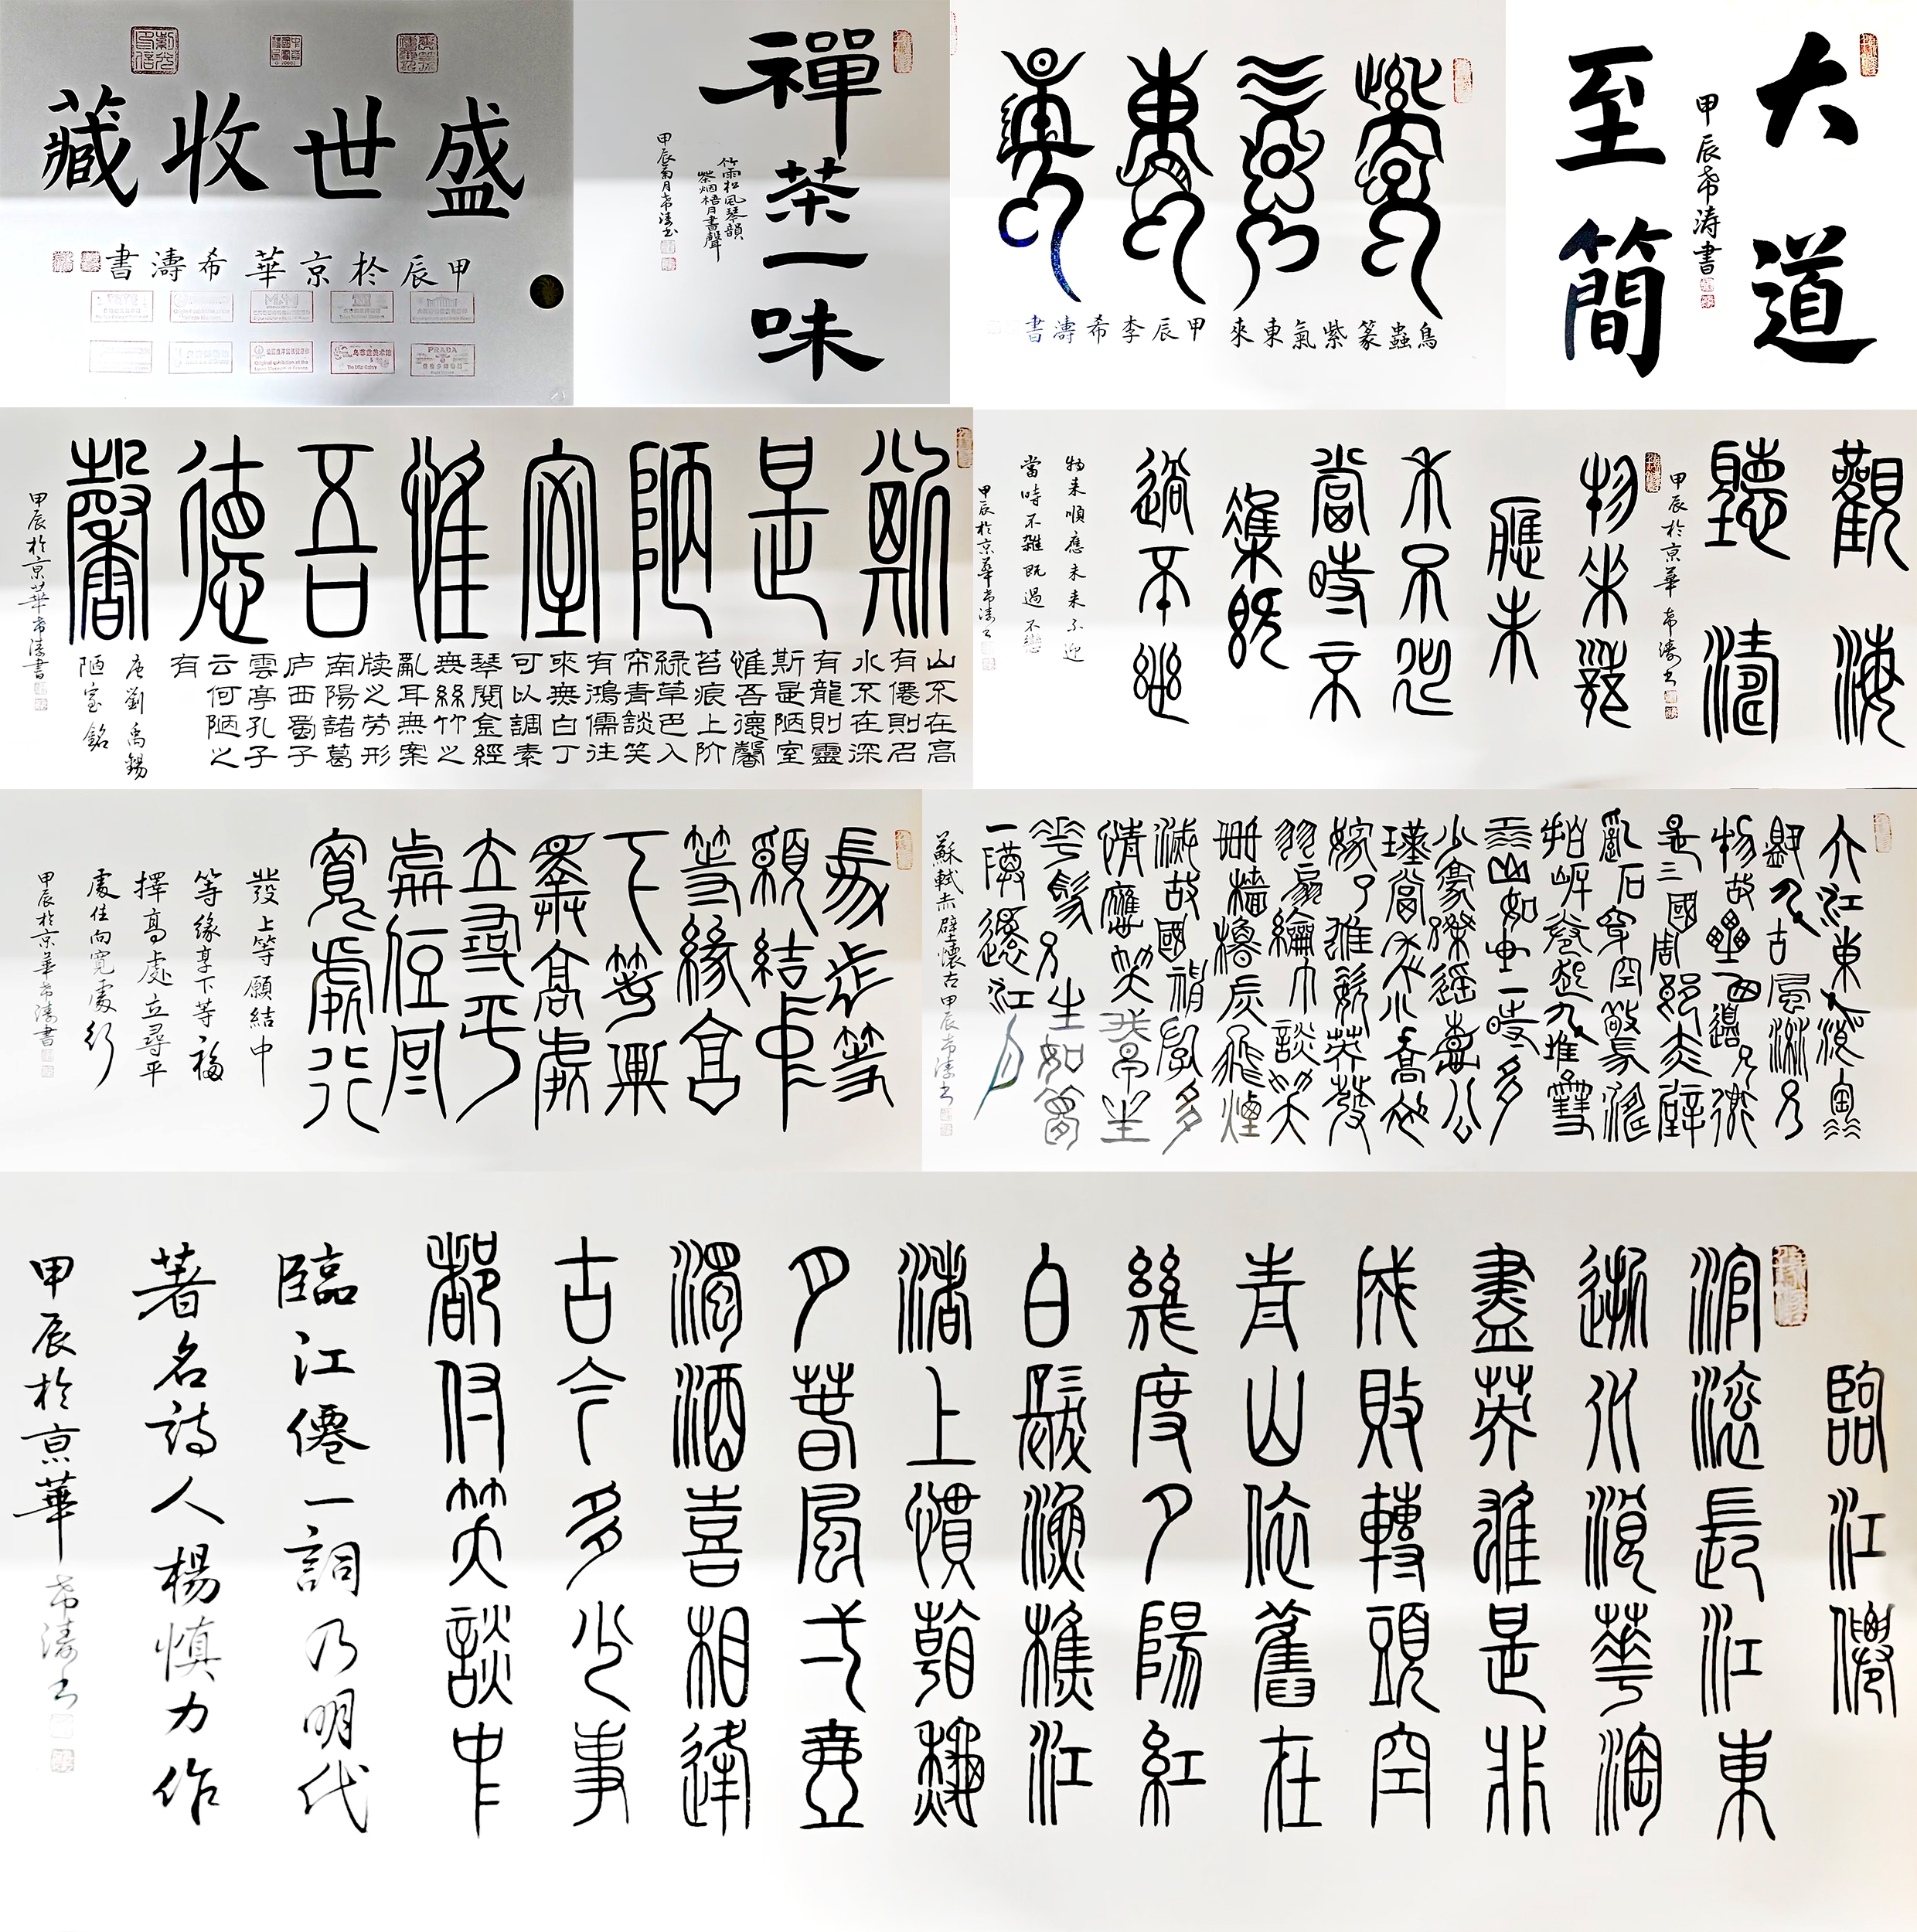 盛世收藏
甲辰於京華希濤書
禪茶一味
竹雨松風琴韻
茶烟梧月書聲
甲辰菊月希濤书
紫氣東來
鳥蟲篆紫氣東來 甲辰李希濤書
大道
甲辰希涛書
至簡
斯是陋室惟吾德馨
山不在高
有僊則名
水不在深
有龍則靈
斯是陋室
惟吾德馨
苔痕上阶
緑草色入
帘青談笑
有鴻儒往
來無白丁
可以調素
琴閱金經
無絲竹之
亂耳無案
牍之劳形
南陽諸葛
庐西蜀子
雲亭孔子
云何陋之
有
唐劉禹錫
陋室銘
甲辰於京華希濤書
觀海
聽濤
甲辰於京華希濤书
物來順
應未
來不迎
當時不
雜既
過不戀
物来順應未来不迎
當時不雜既過不戀
甲辰於京華希濤书
發上等
願結中
等緣享
下等福
擇高處
立尋平
處住向
寬處行
發上等願結中
等緣享下等福
擇高處立尋平
處住向寬處行
甲辰於京華希濤書
大江東去浪淘
盡千古風流人
物故壘西邊人道
是三國周郎赤壁
亂石穿空驚濤
拍岸卷起千堆雪
江山如畫一時多
少豪傑遙想公
瑾當年小喬初
嫁了雄姿英發
羽扇綸巾談笑
間檣櫓灰飛煙
滅故國神游多
情應笑我早生
華髮人生如夢
一樽還江月
蘇軾赤壁懷古甲辰希濤书
臨江僊
滾滾長江東
逝水浪花淘
盡英雄是非
成敗轉頭空
青山依舊在
幾度夕陽紅
白髮漁樵江
渚上慣看秋
月春風一壺
濁酒喜相逢
古今多少事
都付笑談中
臨江僊一詞乃明代
著名詩人楊慎力作
甲辰於京華希濤书